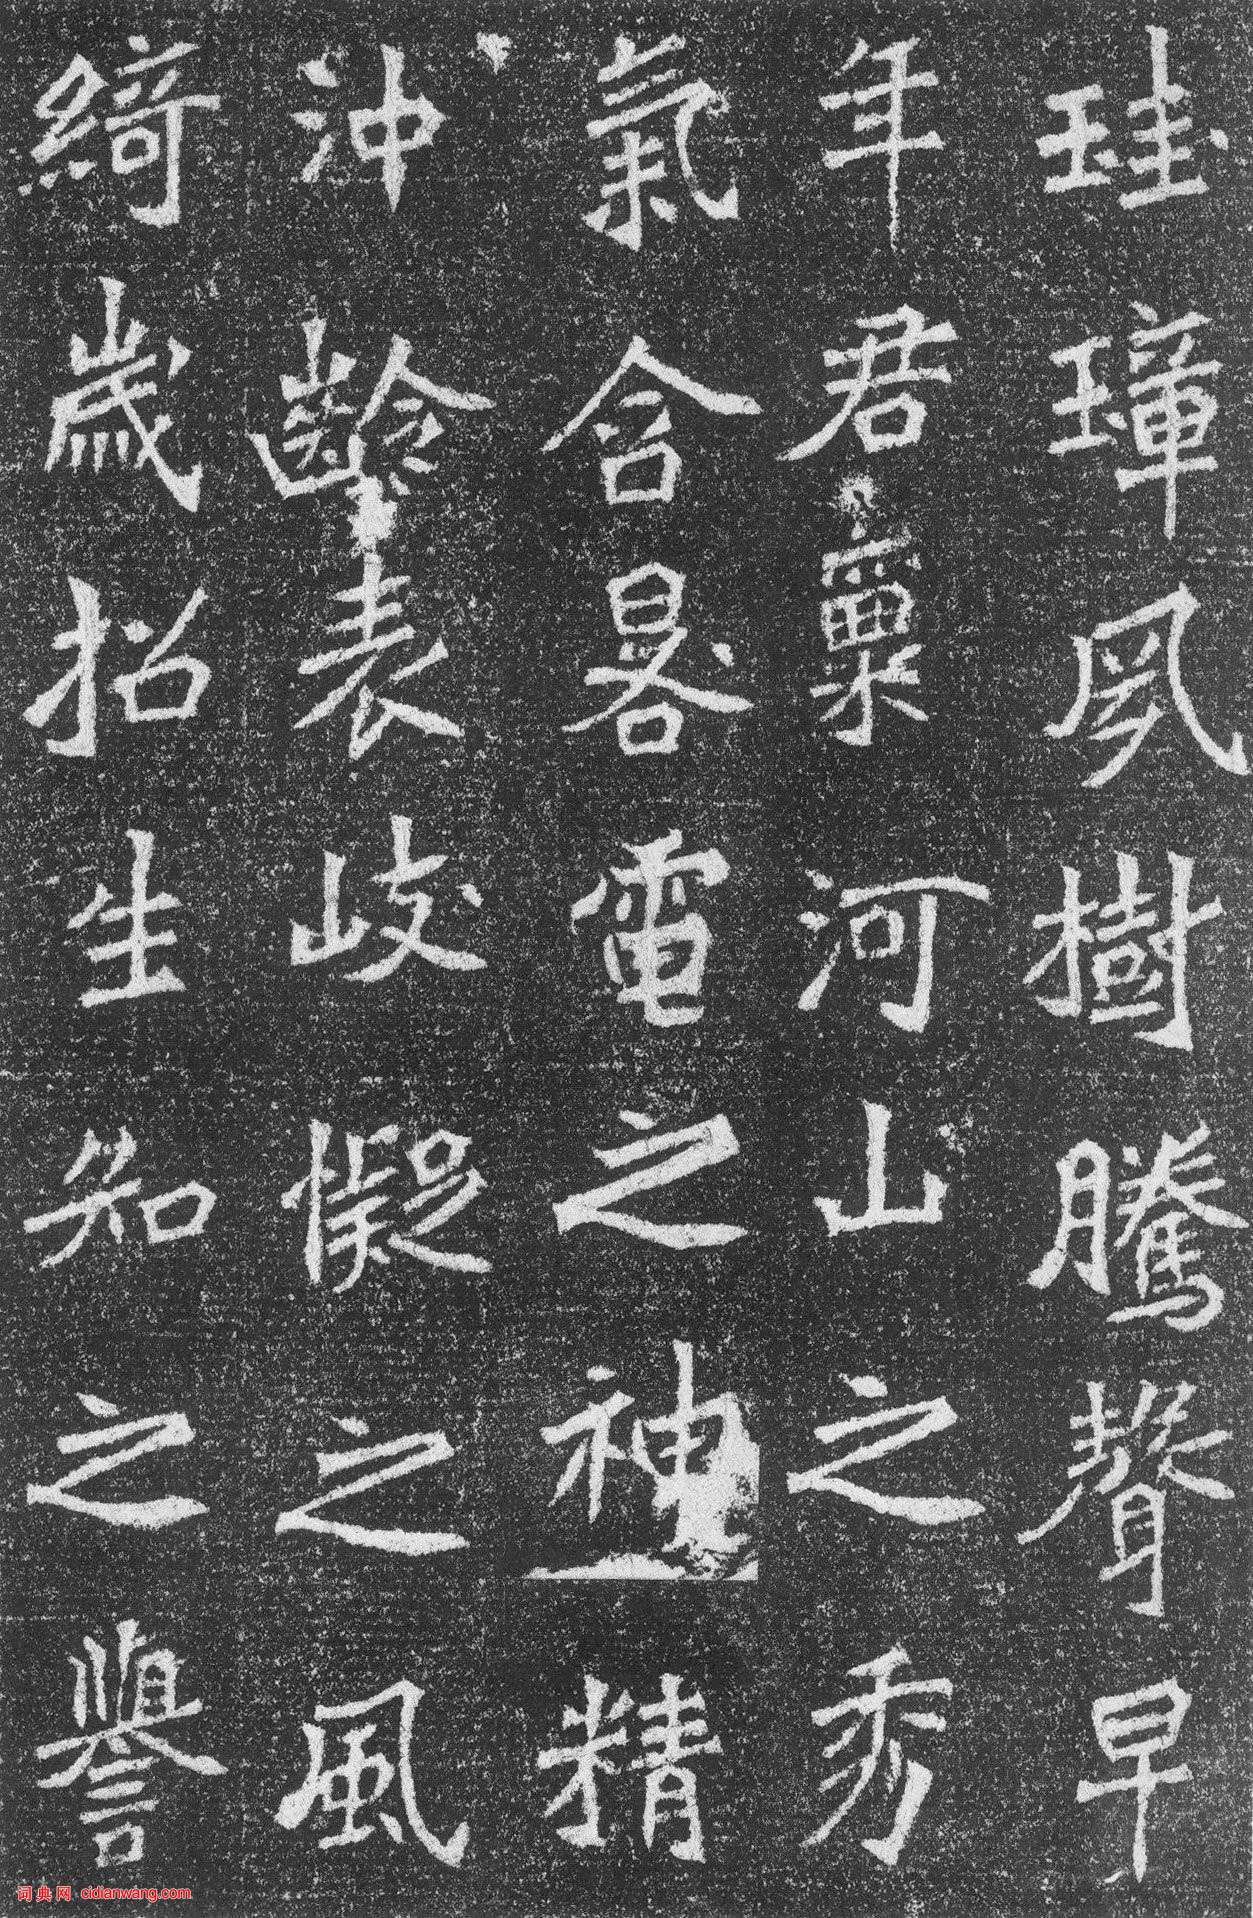 珪璋夙樹騰聲早
年君稟河山之秀
氣含晷電之神精
沖齡表岐嶷之風
綺歲招生知之譽
词典网 cidianwang.com